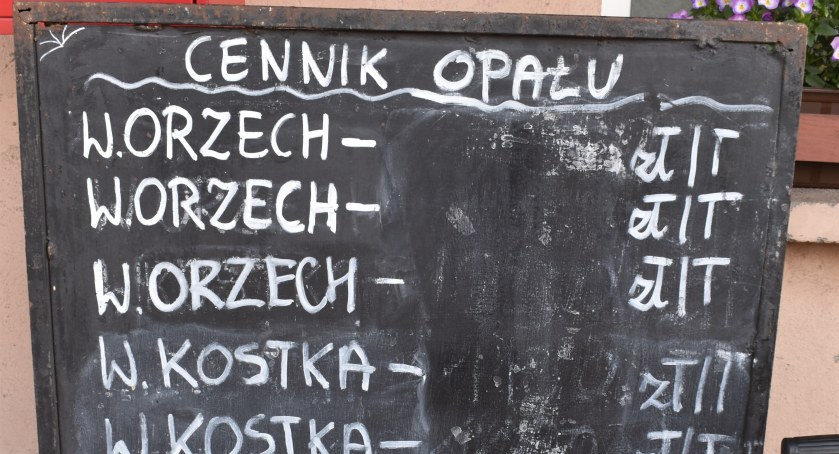 CENNIK OPAŁU
W.ORZECH- zł/T
W.ORZECH- zł/T
W.ORZECH- zł/T
W.KOSTKA- zł/T
W.KOSTKA- zł/T